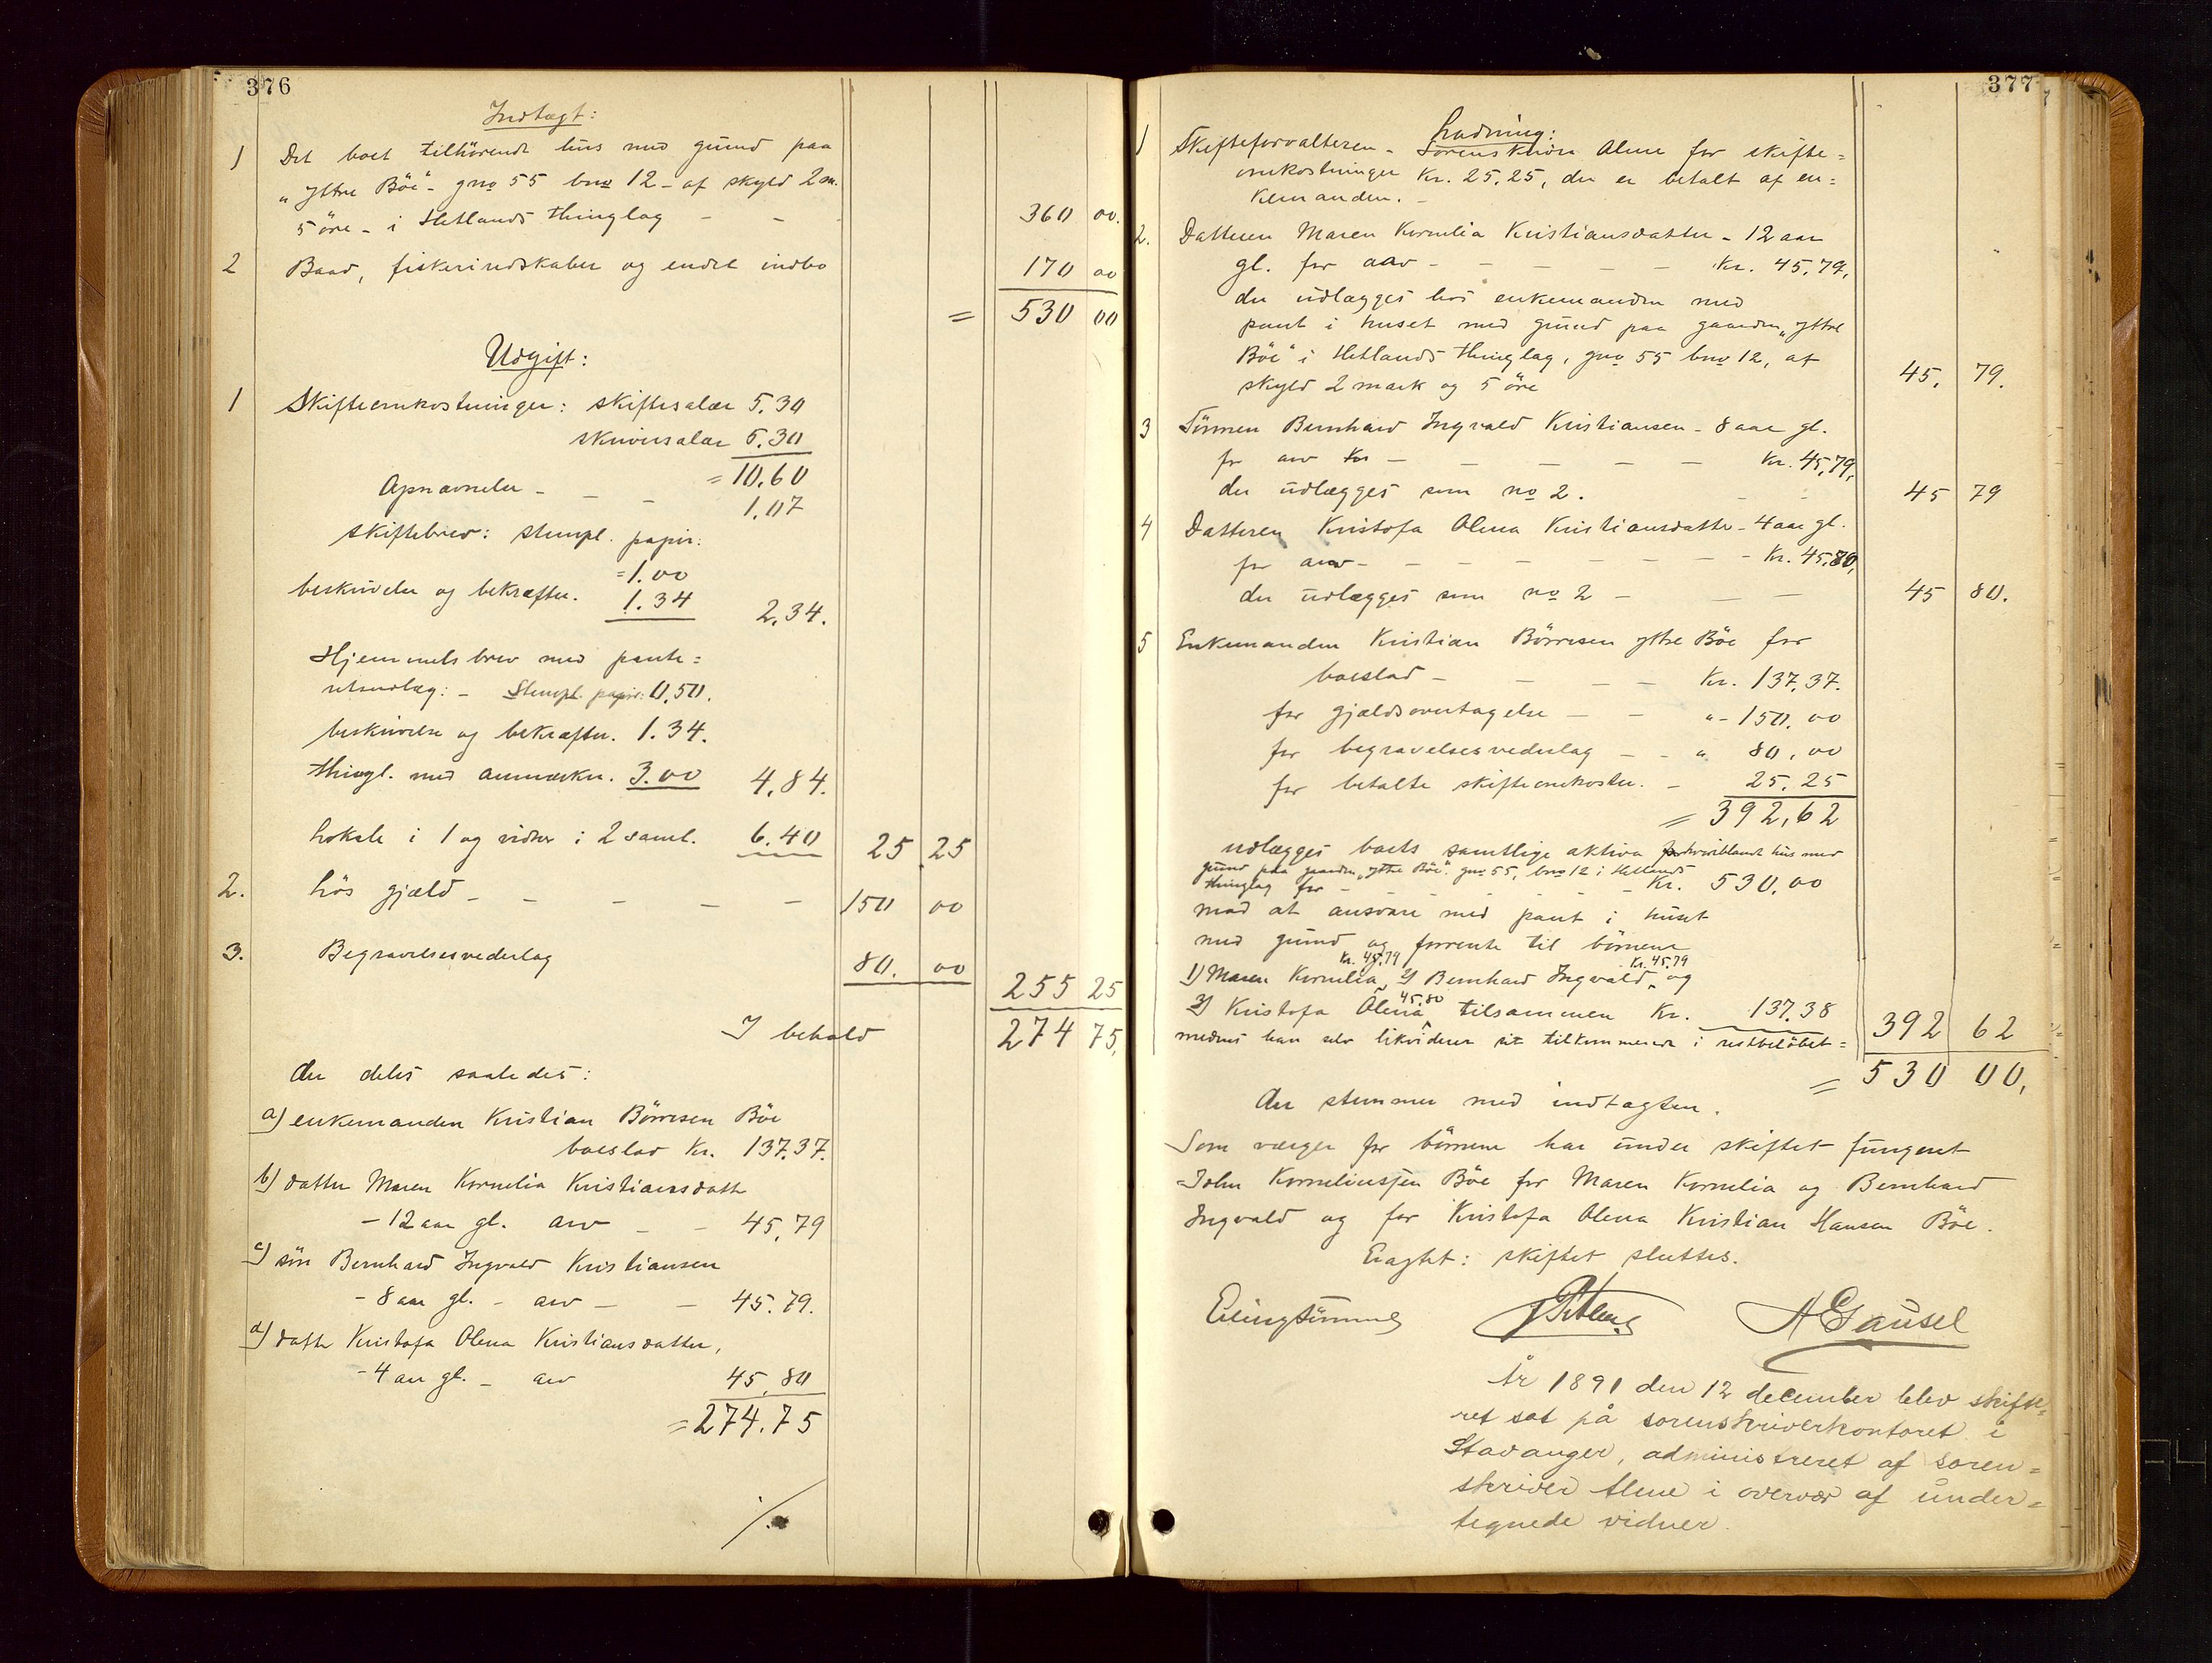 376
Indtægt:
1 Det boet tilhörende hus med grund paa
"Yttre Böe" - gno 55 bno 12 - af skyld 2 m.
5 öre - i Hetlands thinglag - - 360 00.
2 Baad, fiskeriredskaber og endel indbo 170 00
= 530 00
Udgift:
1 Skifteomkostninger: skiftesalær 5.30
skriversalær 5.30
= 10.60
- - - 1.07
skiftebrev: stempl. papir:
= 1.00
beskrivelse og bekræftn. 1.34 2,34.
Hjemmelsbrev med pante=
: - Stempl. papir: 0,50.
beskrivelse og bekræftn. 1.34.
thingl. med anmærkn. 3.00 4,84.
Lokale i 1 og vidner i 2 saml. 6.40 25 25
2. Lös gjæld - - - - - 150 00
3. Begravelsesvederlag 80. 00 255 25
I behold 274 75.
der deles saaledes:
a) enkemanden Kristian Börresen Böe
boeslod Kr. 137.37.
b) datter Maren Kornelia Kristiansdatter
- 12 aar gl. arv - - 45,79
c) sön Bernhard Ingvald Kristiansen
- 8 aar gl. - arv - - 45.79.
d) datter Kristofa Olena Kristiansdatter,
- 4 aar gl. - arv 45,80
= 274.75
./.
377
Lodning:
1 Skifteforvalteren - Sorenskriver Alme for skifte=
omkostninger Kr. 25,25, der er betalt af en=
kemanden. -
2. Datteren Maren Kornelia Kristiansdatter - 12 aar
gl. for arv - - - - - Kr. 45,79,
der udlægges hos enkemanden med
pant i huset med grund paa gaarden "Yttre
Böe" i Hetlands thinglag, gno 55 bno 12, af
skyld 2 mark og 5 öre 45. 79.
3 Sönnen Bernhard Ingvald Kristiansen - 8 aar gl.
for arv Kr - - - - - Kr. 45,79,
der udlægges som no 2. - - 45 79
4 Datteren Kristofa Olena Kristiansdatter - 4 aar gl.
for arv - - - - - - - Kr. 45,80,
der udlægges som no 2 - - - 45 80.
5 Enkemanden Kristian Börresen Yttre Böe for
boeslod - - - - Kr. 137,37.
for gjældsovertagelse - - " - 150,00
for begravelsesvederlag - - " 80,00
for betalte skifteomkostn. - 25,25
= 392,62
udlægges boets samtlige aktiva hvoriblandt hus med
grund paa gaarden "Yttre Böe" gno 55, bno 12 i Hetlands
thinglag for - - - - - - Kr. 530,00
mod at ansvare med pant i huset
med grund og forrente til börnene
Kr. 45.79 Kr. 45.79
1) Maren Kornelia, 2) Bernhard Ingvald, og
45.80
3) Kristofa Olena tilsammen Kr. 137.38
medens han selv likviderer sit tilkommende i restbelöbet = 392 62
= 530 00.
der stemmer med indtægten.
Som værger for börnene har under skiftet fungeret
John Korneliussen Böe for Maren Kornelia og Bernhard
Ingvald og for Kristofa Olena Kristian Hansen Böe.
Eragtet: skiftet sluttes.
A Gausel
År 1891 den 12 december blev skifte=
ret sat på sorenskriverkontoret i
Stavanger, administreret af soren=
skriver Alme i overvær af under=
tegnede vidner.